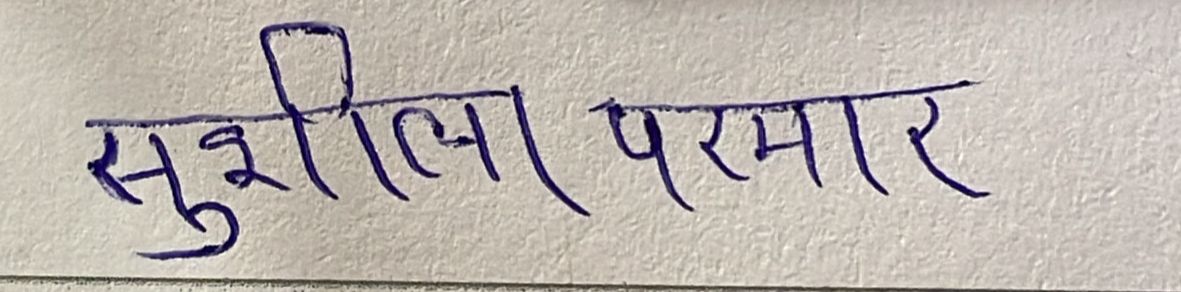 सुशीला परमार